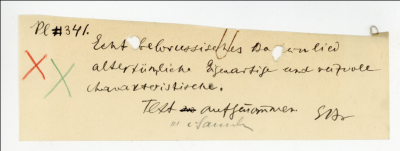 Pl #341.
Echt belorussisches Bauernlied
altertümliche Eigenartige und reizvolle
charakteristische.
Text aufgenommen